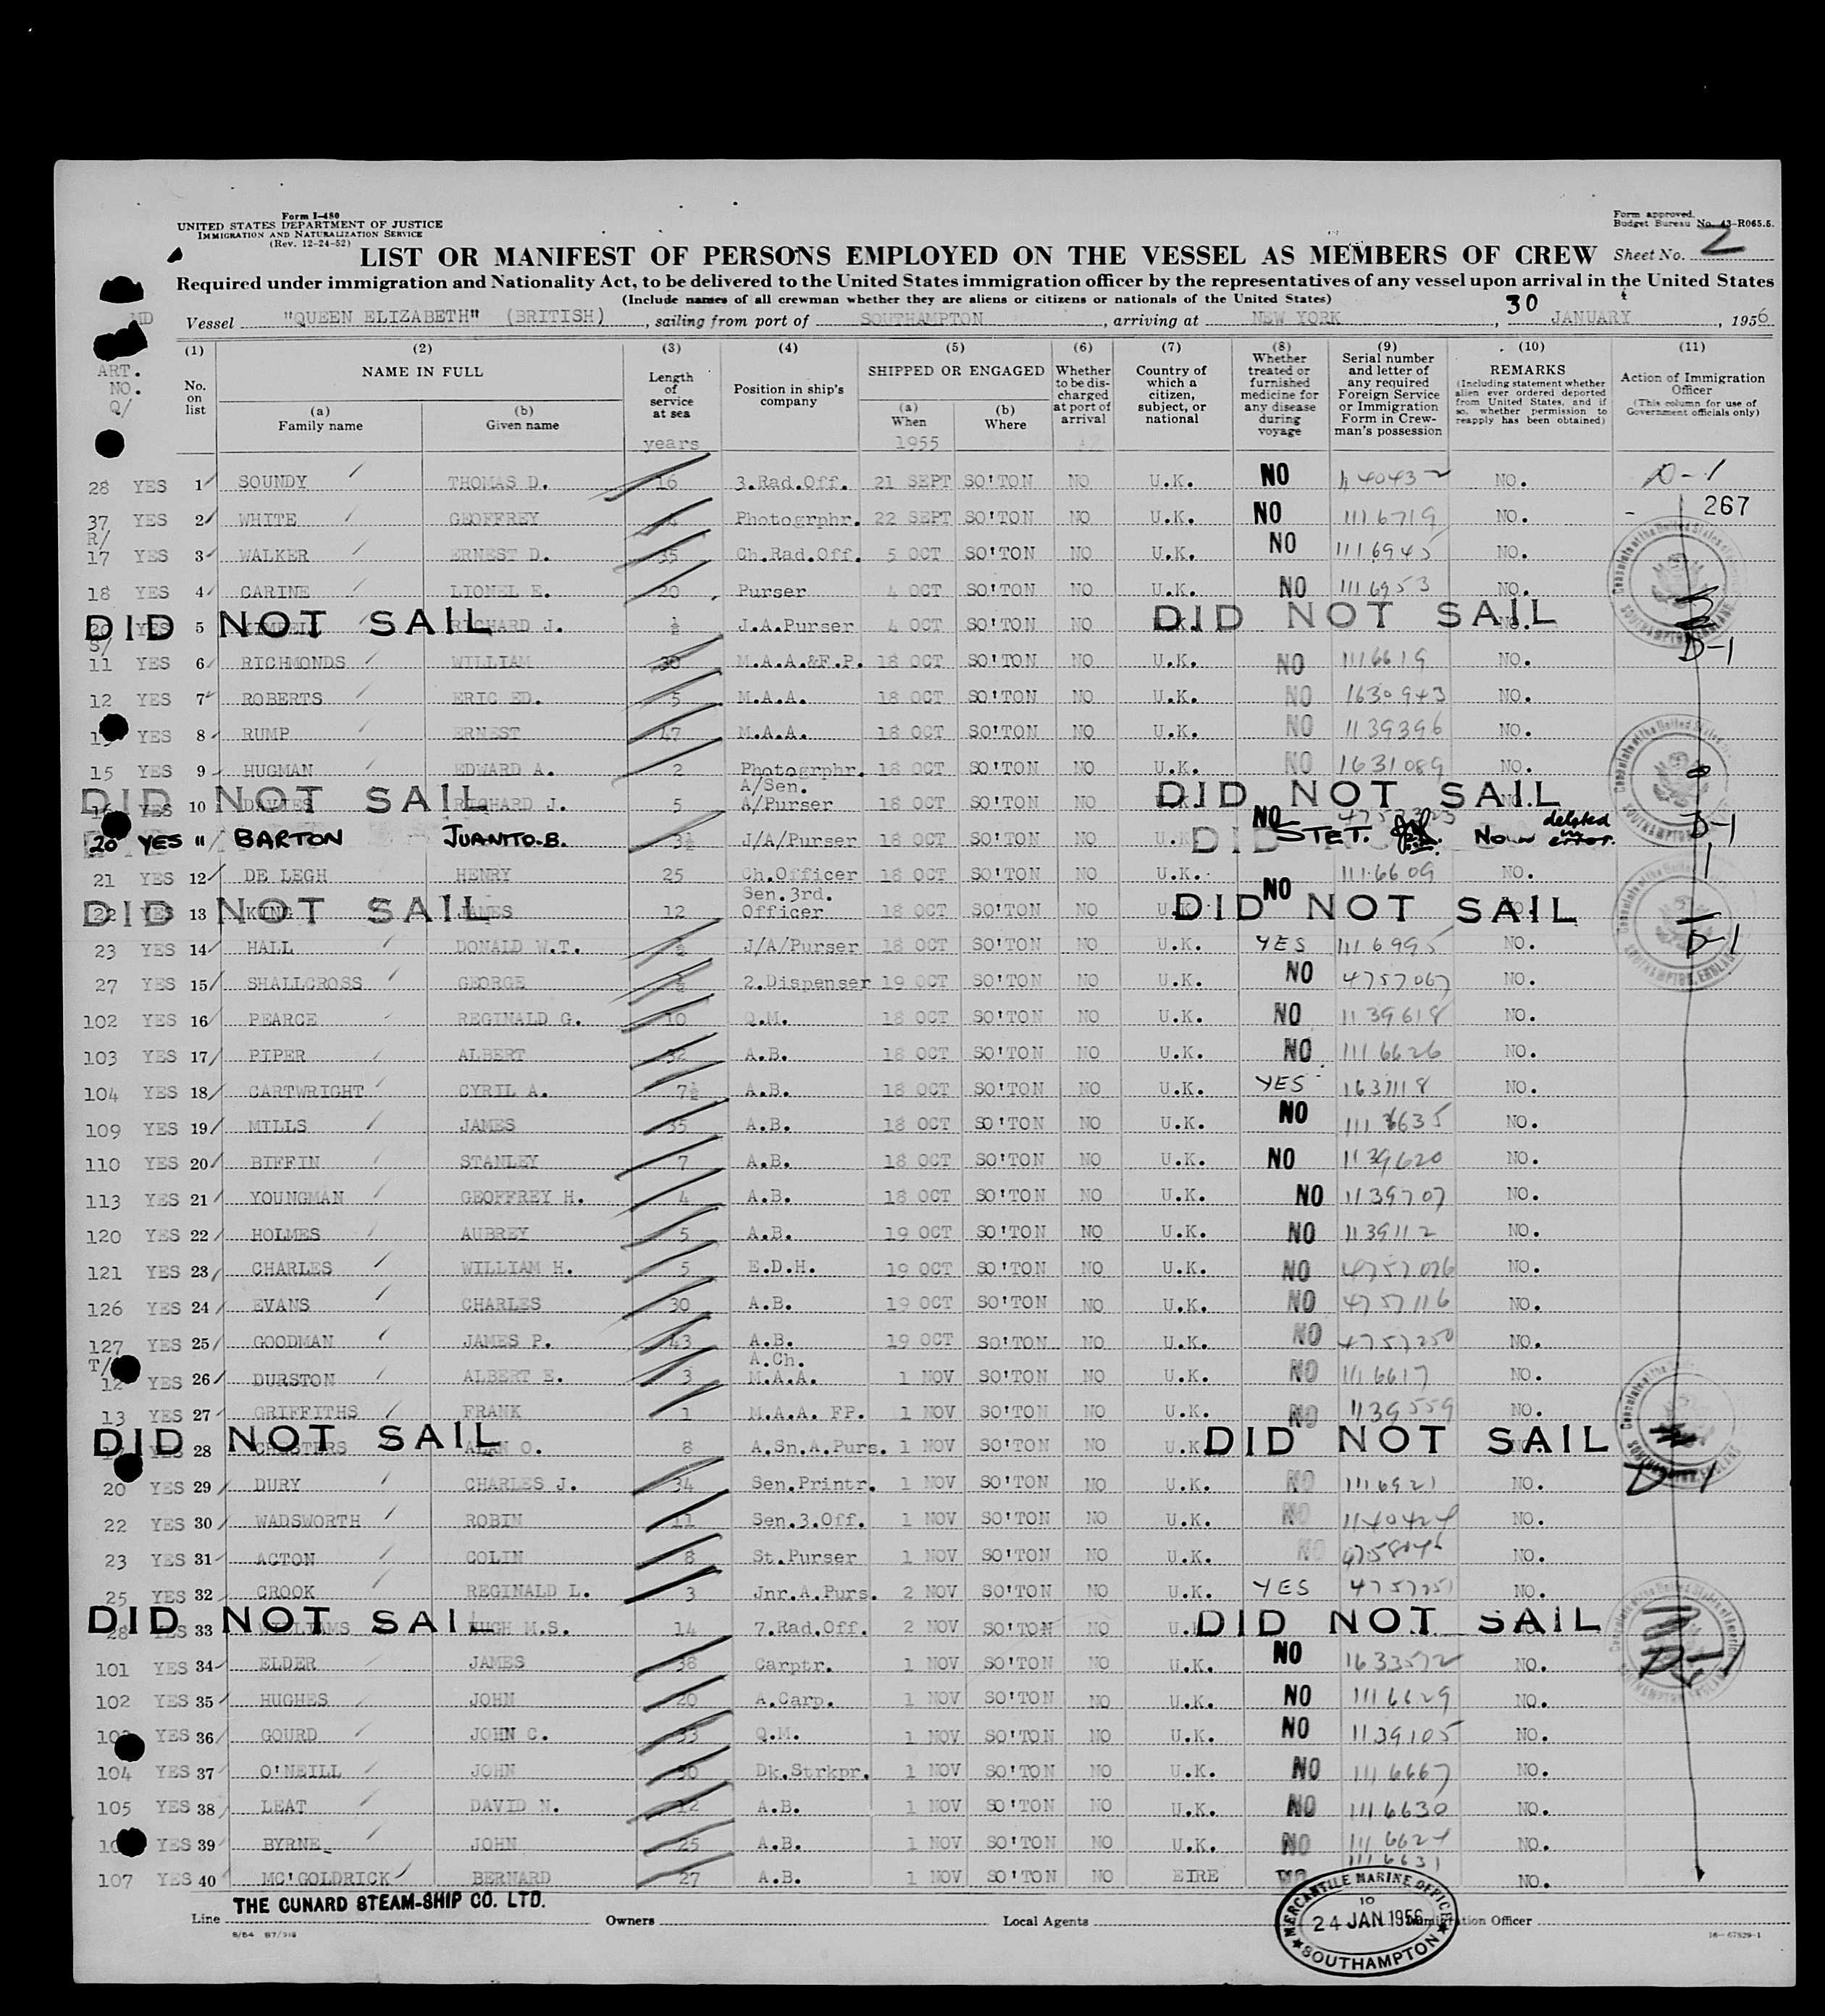 Form I-480
UNITED STATES DEPARTMENT OF JUSTICE
IMMIGRATION AND NATURALIZATION SERVICE
(Rev. 12-24-52)
Form approved.
Budget Bureau No. 43-R065.5.
LIST OR MANIFEST OF PERSONS EMPLOYED ON THE VESSEL AS MEMBERS OF CREW Sheet No. 2
Required under immigration and Nationality Act, to be delivered to the United States immigration officer by the representatives of any vessel upon arrival in the United States
(Include names of all crewman whether they are aliens or citizens or nationals of the United States)
Vessel "QUEEN ELIZABETH" (BRITISH), sailing from port of SOUTHAMPTON, arriving at NEW YORK, 30 JANUARY, 1956
ART. NO. Q/
(1) No. on list
(2) NAME IN FULL (a) Family name (b) Given name
(3) Length of service at sea years
(4) Position in ship's company
(5) SHIPPED OR ENGAGED (a) When 1955 (b) Where
(6) Whether to be discharged at port of arrival
(7) Country of which a citizen, subject, or national
(8) Whether treated or furnished medicine for any disease during voyage
(9) Serial number and letter of any required Foreign Service or Immigration Form in Crewman's possession
(10) REMARKS (Including statement whether alien ever ordered deported from United States, and if so, whether permission to reapply has been obtained)
(11) Action of Immigration Officer (This column for use of Government officials only)
28 YES 1 SOUNDY THOMAS D. 16 3.Rad.Off. 21 SEPT SO'TON NO U.K. NO NO. D-1
37 YES 2 WHITE GEOFFREY Photogrphr. 22 SEPT SO'TON NO U.K. NO 1116719 NO. 267
R/
17 YES 3 WALKER ERNEST D. 35 Ch.Rad.Off. 5 OCT SO'TON NO U.K. NO 1116945 NO.
18 YES 4 CARINE LIONEL E. 20 Purser 4 OCT SO'TON NO U.K. NO 1116953 NO.
DID NOT SAIL 5 RICHARD J. ½ J.A.Purser 4 OCT SO'TON NO DID NOT SAIL
S/
11 YES 6 RICHMONDS WILLIAM 30 M.A.A.&F.P. 18 OCT SO'TON NO U.K. NO 1116619 NO. D-1
12 YES 7 ROBERTS ERIC ED. 5 M.A.A. 18 OCT SO'TON NO U.K. NO 1630943 NO.
YES 8 RUMP ERNEST 47 M.A.A. 18 OCT SO'TON NO U.K. NO 1139396 NO.
15 YES 9 HUGMAN EDWARD A. 2 Photogrphr. 18 OCT SO'TON NO U.K. NO 1631089 NO.
DID NOT SAIL 16 YES 10 DAVIES RICHARD J. 5 A/Sen. A/Purser 18 OCT SO'TON NO DID NOT SAIL
20 YES 11 BARTON JUANITO.B. 3½ J/A/Purser 18 OCT SO'TON NO U.K. DID NO STET. No deleted in error. D-1
21 YES 12 DE LEGH HENRY 25 Ch.Officer 18 OCT SO'TON NO U.K. NO 1116609 NO.
DID NOT SAIL 22 YES 13 KING JAMES 12 Sen.3rd. Officer 18 OCT SO'TON NO DID NOT SAIL
23 YES 14 HALL DONALD W.T. ½ J/A/Purser 18 OCT SO'TON NO U.K. YES 1116995 NO. D-1
27 YES 15 SHALLCROSS GEORGE ½ 2.Dispenser 19 OCT SO'TON NO U.K. NO 4757067 NO.
102 YES 16 PEARCE REGINALD G. 10 Q.M. 18 OCT SO'TON NO U.K. NO 1139618 NO.
103 YES 17 PIPER ALBERT 32 A.B. 18 OCT SO'TON NO U.K. NO 1116626 NO.
104 YES 18 CARTWRIGHT CYRIL A. 7½ A.B. 18 OCT SO'TON NO U.K. YES 1631118 NO.
109 YES 19 MILLS JAMES 35 A.B. 18 OCT SO'TON NO U.K. NO 1116635 NO.
110 YES 20 BIFFIN STANLEY 7 A.B. 18 OCT SO'TON NO U.K. NO 1139620 NO.
113 YES 21 YOUNGMAN GEOFFREY H. 4 A.B. 18 OCT SO'TON NO U.K. NO 1139707 NO.
120 YES 22 HOLMES AUBREY 5 A.B. 19 OCT SO'TON NO U.K. NO 1139112 NO.
121 YES 23 CHARLES WILLIAM H. 5 E.D.H. 19 OCT SO'TON NO U.K. NO 4757076 NO.
126 YES 24 EVANS CHARLES 30 A.B. 19 OCT SO'TON NO U.K. NO 4757116 NO.
127 YES 25 GOODMAN JAMES P. 43 A.B. 19 OCT SO'TON NO U.K. NO 4757250 NO.
T/
12 YES 26 DURSTON ALBERT E. 3 A.Ch. M.A.A. 1 NOV SO'TON NO U.K. NO 1116617 NO.
13 YES 27 GRIFFITHS FRANK 1 M.A.A. FP. 1 NOV SO'TON NO U.K. NO 1139559 NO.
DID NOT SAIL 28 ALAN O. 8 A.Sn.A.Purs. 1 NOV SO'TON NO U.K. DID NOT SAIL
20 YES 29 DURY CHARLES J. 34 Sen.Printr. 1 NOV SO'TON NO U.K. NO 1116921 NO. D-1
22 YES 30 WADSWORTH ROBIN 11 Sen.3.Off. 1 NOV SO'TON NO U.K. NO 1140424 NO.
23 YES 31 ACTON COLIN 8 St.Purser 1 NOV SO'TON NO U.K. NO NO.
25 YES 32 CROOK REGINALD L. 3 Jnr.A.Purs. 2 NOV SO'TON NO U.K. YES 4757251 NO.
DID NOT SAIL 28 YES 33 WILLIAMS HUGH M.S. 14 7.Rad.Off. 2 NOV SO'TON NO DID NOT SAIL
101 YES 34 ELDER JAMES 38 Carptr. 1 NOV SO'TON NO U.K. NO 1633572 NO. D-1
102 YES 35 HUGHES JOHN 20 A.Carp. 1 NOV SO'TON NO U.K. NO 1116629 NO.
103 YES 36 GOURD JOHN C. 33 Q.M. 1 NOV SO'TON NO U.K. NO 1139105 NO.
104 YES 37 O'NEILL JOHN 30 Dk.Strkpr. 1 NOV SO'TON NO U.K. NO 1116667 NO.
105 YES 38 LEAT DAVID N. 12 A.B. 1 NOV SO'TON NO U.K. NO 1116630 NO.
YES 39 BYRNE JOHN 25 A.B. 1 NOV SO'TON NO U.K. NO 1116624 NO.
107 YES 40 MC'GOLDRICK BERNARD 27 A.B. 1 NOV SO'TON NO EIRE NO 1116631 NO.
Line THE CUNARD STEAM-SHIP CO. LTD. Owners Local Agents Immigration Officer
MERCANTILE MARINE OFFICE 10 24 JAN 1956 SOUTHAMPTON
16-67829-1